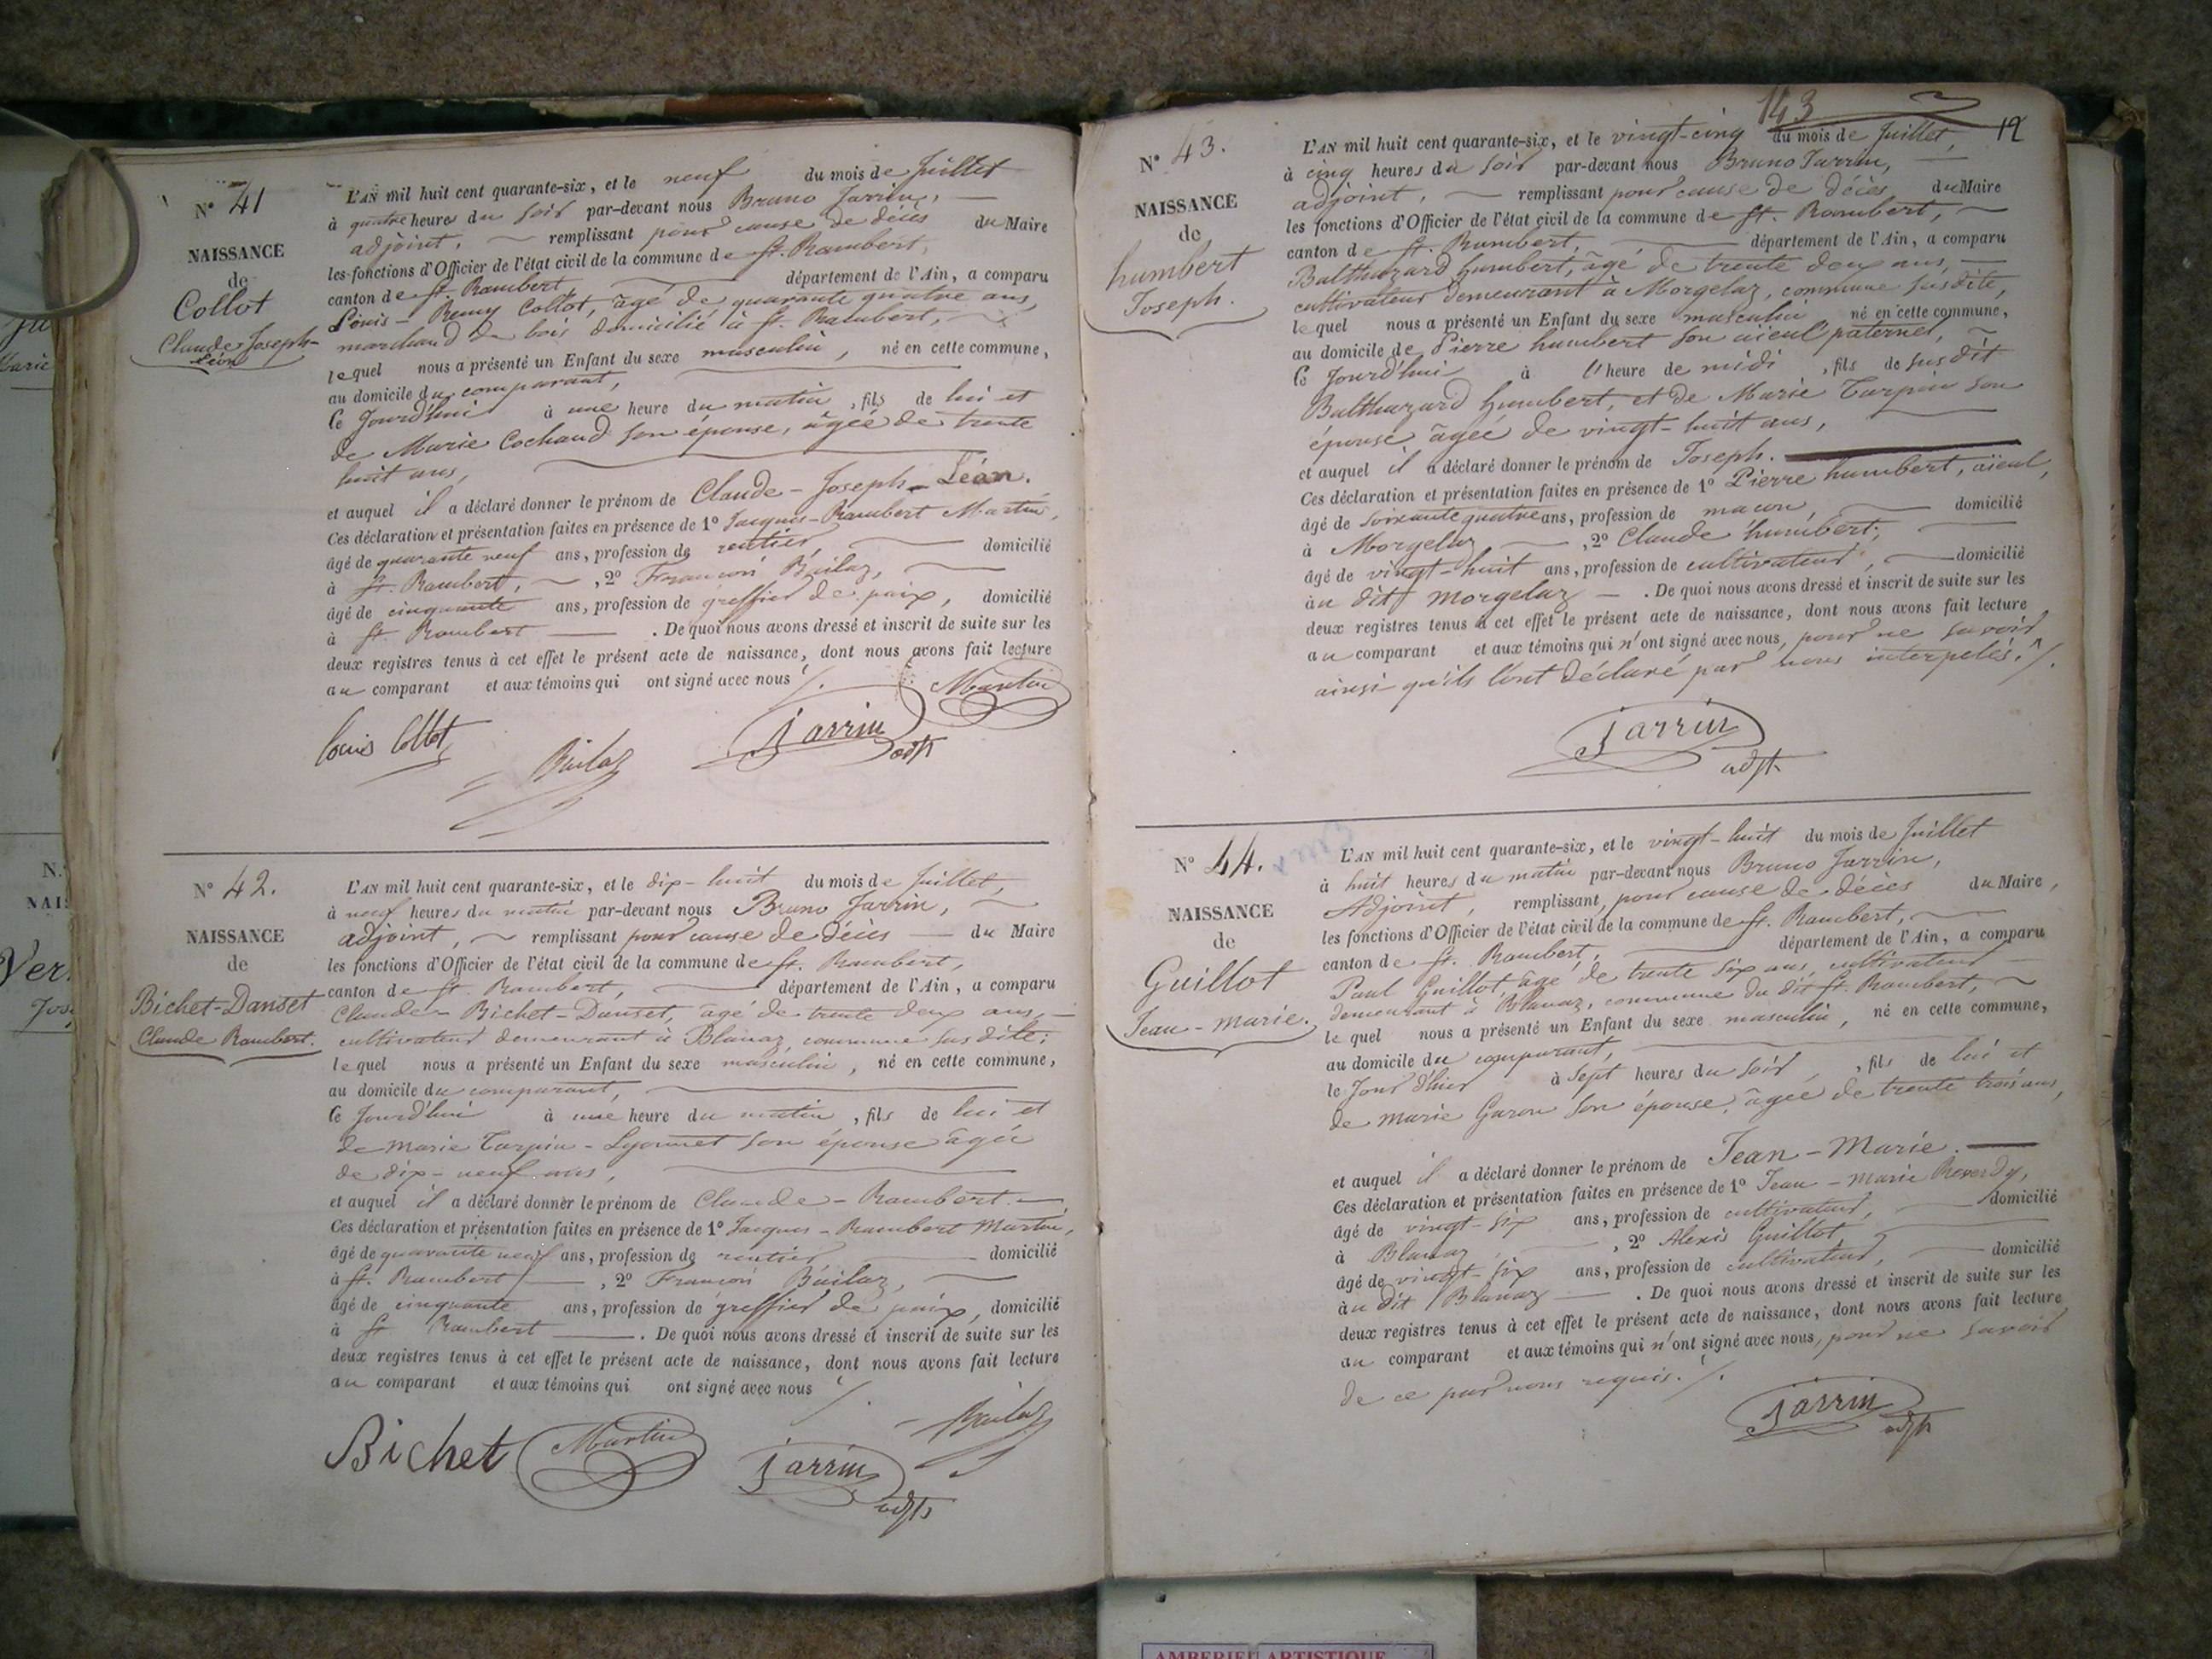 N° 41
NAISSANCE
de
Collot
Claude Joseph-
Léon
L'AN mil huit cent quarante-six, et le neuf du mois de Juillet
à quatre heures du soir par-devant nous Bruno Jarrin,
adjoint, remplissant pour cause de décès du Maire
les fonctions d'Officier de l'état civil de la commune de St. Rambert,
canton de St. Rambert, département de l'Ain, a comparu
Louis-Remy Collot, âgé de quarante quatre ans,
marchand de bois domicilié à St. Rambert,
lequel nous a présenté un Enfant du sexe masculin, né en cette commune,
au domicile du comparant,
Ce Jourd'hui à une heure du matin, fils de lui et
de Marie Cochaud son épouse, âgée de trente
huit ans,
et auquel il a déclaré donner le prénom de Claude-Joseph-Léon.
Ces déclaration et présentation faites en présence de 1° Jacques-Rambert Martin,
âgé de quarante neuf ans, profession de rentier, domicilié
à St. Rambert, , 2° François Bailaz,
âgé de cinquante ans, profession de greffier de paix, domicilié
à St. Rambert . De quoi nous avons dressé et inscrit de suite sur les
deux registres tenus à cet effet le présent acte de naissance, dont nous avons fait lecture
au comparant et aux témoins qui ont signé avec nous
Martin
Louis Collot
Bailaz
Jarrin
adjt
N° 42.
NAISSANCE
de
Bichet-Danset
Claude Rambert.
L'AN mil huit cent quarante-six, et le dix-huit du mois de Juillet,
à neuf heures du matin par-devant nous Bruno Jarrin,
adjoint, remplissant pour cause de décès du Maire
les fonctions d'Officier de l'état civil de la commune de St. Rambert,
canton de St. Rambert, département de l'Ain, a comparu
Claude-Bichet-Danset, âgé de trente deux ans,
cultivateur demeurant à Blanaz, commune susdite;
lequel nous a présenté un Enfant du sexe masculin, né en cette commune,
au domicile du comparant,
Ce Jourd'hui à une heure du matin, fils de lui et
de Marie Tarpin-Lyonnet son épouse âgée
de dix-neuf ans,
et auquel il a déclaré donner le prénom de Claude-Rambert.
Ces déclaration et présentation faites en présence de 1° Jacques-Rambert Martin,
âgé de quarante neuf ans, profession de rentier domicilié
à St. Rambert , 2° François Bailaz,
âgé de cinquante ans, profession de greffier de paix, domicilié
à St Rambert . De quoi nous avons dressé et inscrit de suite sur les
deux registres tenus à cet effet le présent acte de naissance, dont nous avons fait lecture
au comparant et aux témoins qui ont signé avec nous
Bailaz
Bichet Martin
Jarrin
adjt
143
12
N° 43.
NAISSANCE
de
humbert
Joseph.
L'AN mil huit cent quarante-six, et le vingt-cinq du mois de Juillet,
à cinq heures du soir par-devant nous Bruno Jarrin,
adjoint, remplissant pour cause de décès du Maire
les fonctions d'Officier de l'état civil de la commune de St. Rambert,
canton de St. Rambert, département de l'Ain, a comparu
Balthazard humbert, âgé de trente deux ans,
cultivateur demeurant à Morgelaz, commune susdite,
lequel nous a présenté un Enfant du sexe masculin né en cette commune,
au domicile de Pierre humbert son aïeul paternel,
Ce Jourd'hui à l'heure de midi, fils de susdit
Balthazard humbert, et de Marie Tarpin son
épouse âgée de vingt-huit ans,
et auquel il a déclaré donner le prénom de Joseph.
Ces déclaration et présentation faites en présence de 1° Pierre humbert, aïeul,
âgé de soixante quatre ans, profession de maçon, domicilié
à Morgelaz , 2° Claude humbert,
âgé de vingt-huit ans, profession de cultivateur, domicilié
au dit Morgelaz . De quoi nous avons dressé et inscrit de suite sur les
deux registres tenus à cet effet le présent acte de naissance, dont nous avons fait lecture
au comparant et aux témoins qui n'ont signé avec nous, pour ne savoir
ainsi qu'ils l'ont déclaré par nous interpelés.
Jarrin
adjt
N° 44.
NAISSANCE
de
Guillot
Jean-Marie.
L'AN mil huit cent quarante-six, et le vingt-huit du mois de Juillet
à huit heures du matin par-devant nous Bruno Jarrin,
Adjoint, remplissant, pour cause de décès du Maire,
les fonctions d'Officier de l'état civil de la commune de St. Rambert,
canton de St. Rambert, département de l'Ain, a comparu
Paul Guillot, âgé de trente six ans, cultivateur
demeurant à Blanaz, commune du dit St. Rambert,
lequel nous a présenté un Enfant du sexe masculin, né en cette commune,
au domicile du comparant,
le Jour d'hier à sept heures du soir, fils de lui et
de Marie Garon son épouse, âgée de trente trois ans,
et auquel il a déclaré donner le prénom de Jean-Marie.
Ces déclaration et présentation faites en présence de 1° Jean-Marie Reverdy,
âgé de vingt-six ans, profession de cultivateur, domicilié
à Blanaz , 2° Alexis Guillot,
âgé de vingt-six ans, profession de cultivateur, domicilié
au dit Blanaz . De quoi nous avons dressé et inscrit de suite sur les
deux registres tenus à cet effet le présent acte de naissance, dont nous avons fait lecture
au comparant et aux témoins qui n'ont signé avec nous, pour ne savoir
de ce par nous requis.
Jarrin
adjt
AMBERIEU ARTISTIQUE